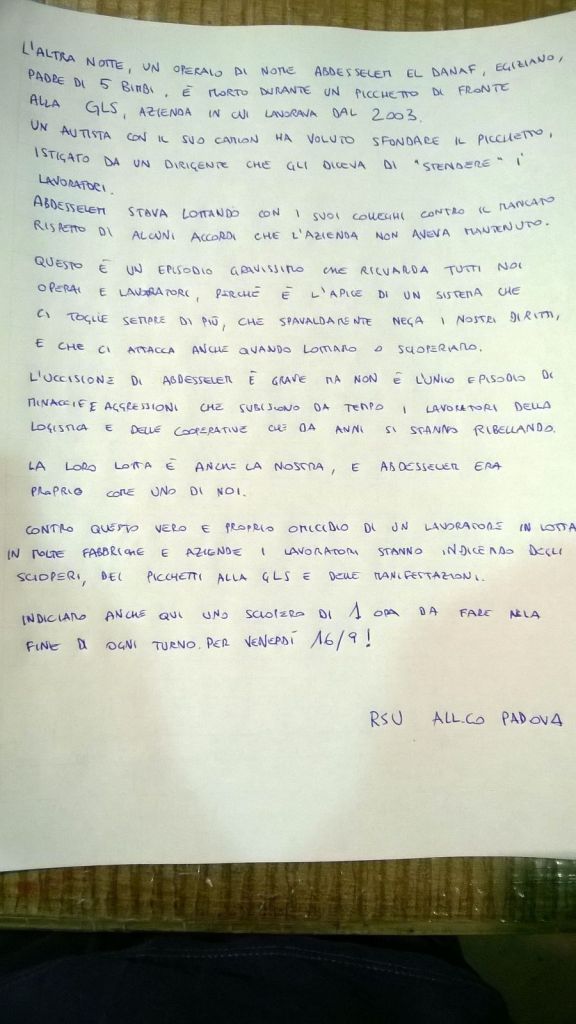 L'ALTRA NOTTE, UN OPERAIO DI NOME ABDESSELEM EL DANAF, EGIZIANO,
PADRE DI 5 BIMBI, È MORTO DURANTE UN PICCHETTO DI FRONTE
ALLA GLS, AZIENDA IN CUI LAVORAVA DAL 2003.
UN AUTISTA CON IL SUO CAMION HA VOLUTO SFONDARE IL PICCHETTO,
ISTIGATO DA UN DIRIGENTE CHE GLI DICEVA DI "STENDERE" I
LAVORATORI.
ABDESSELEM STAVA LOTTANDO CON I SUOI COLLEGHI CONTRO IL MANCATO
RISPETTO DI ALCUNI ACCORDI CHE L'AZIENDA NON AVEVA MANTENUTO.
QUESTO È UN EPISODIO GRAVISSIMO CHE RIGUARDA TUTTI NOI
OPERAI E LAVORATORI, PERCHÈ È L'APICE DI UN SISTEMA CHE
CI TOGLIE SEMPRE DI PIÙ, CHE SPAVALDAMENTE NEGA I NOSTRI DIRITTI,
E CHE CI ATTACCA ANCHE QUANDO LOTTIAMO O SCIOPERIAMO.
L'UCCISIONE DI ABDESSELEM È GRAVE MA NON È L'UNICO EPISODIO DI
MINACCIE E AGGRESSIONI CHE SUBISCONO DA TEMPO I LAVORATORI DELLA
LOGISTICA E DELLE COOPERATIVE CHE DA ANNI SI STANNO RIBELLANDO.
LA LORO LOTTA È ANCHE LA NOSTRA, E ABDESSELEM ERA
PROPRIO COME UNO DI NOI.
CONTRO QUESTO VERO E PROPRIO OMICIDIO DI UN LAVORATORE IN LOTTA
IN MOLTE FABBRICHE E AZIENDE I LAVORATORI STANNO INDICENDO DEGLI
SCIOPERI, DEI PICCHETTI ALLA GLS E DELLE MANIFESTAZIONI.
INDICIAMO ANCHE QUI UNO SCIOPERO DI 1 ORA DA FARE NELLA
FINE DI OGNI TURNO. PER VENERDÌ 16/9!
RSU ALL.CO PADOVA